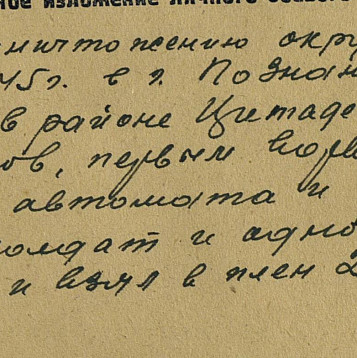 ное изложение личного боевого
ничтожению окру
45г. в г. Познан
в районе Цитаде
ов, первым ворв
автомата и
солдат и одно
и взял в плен 2